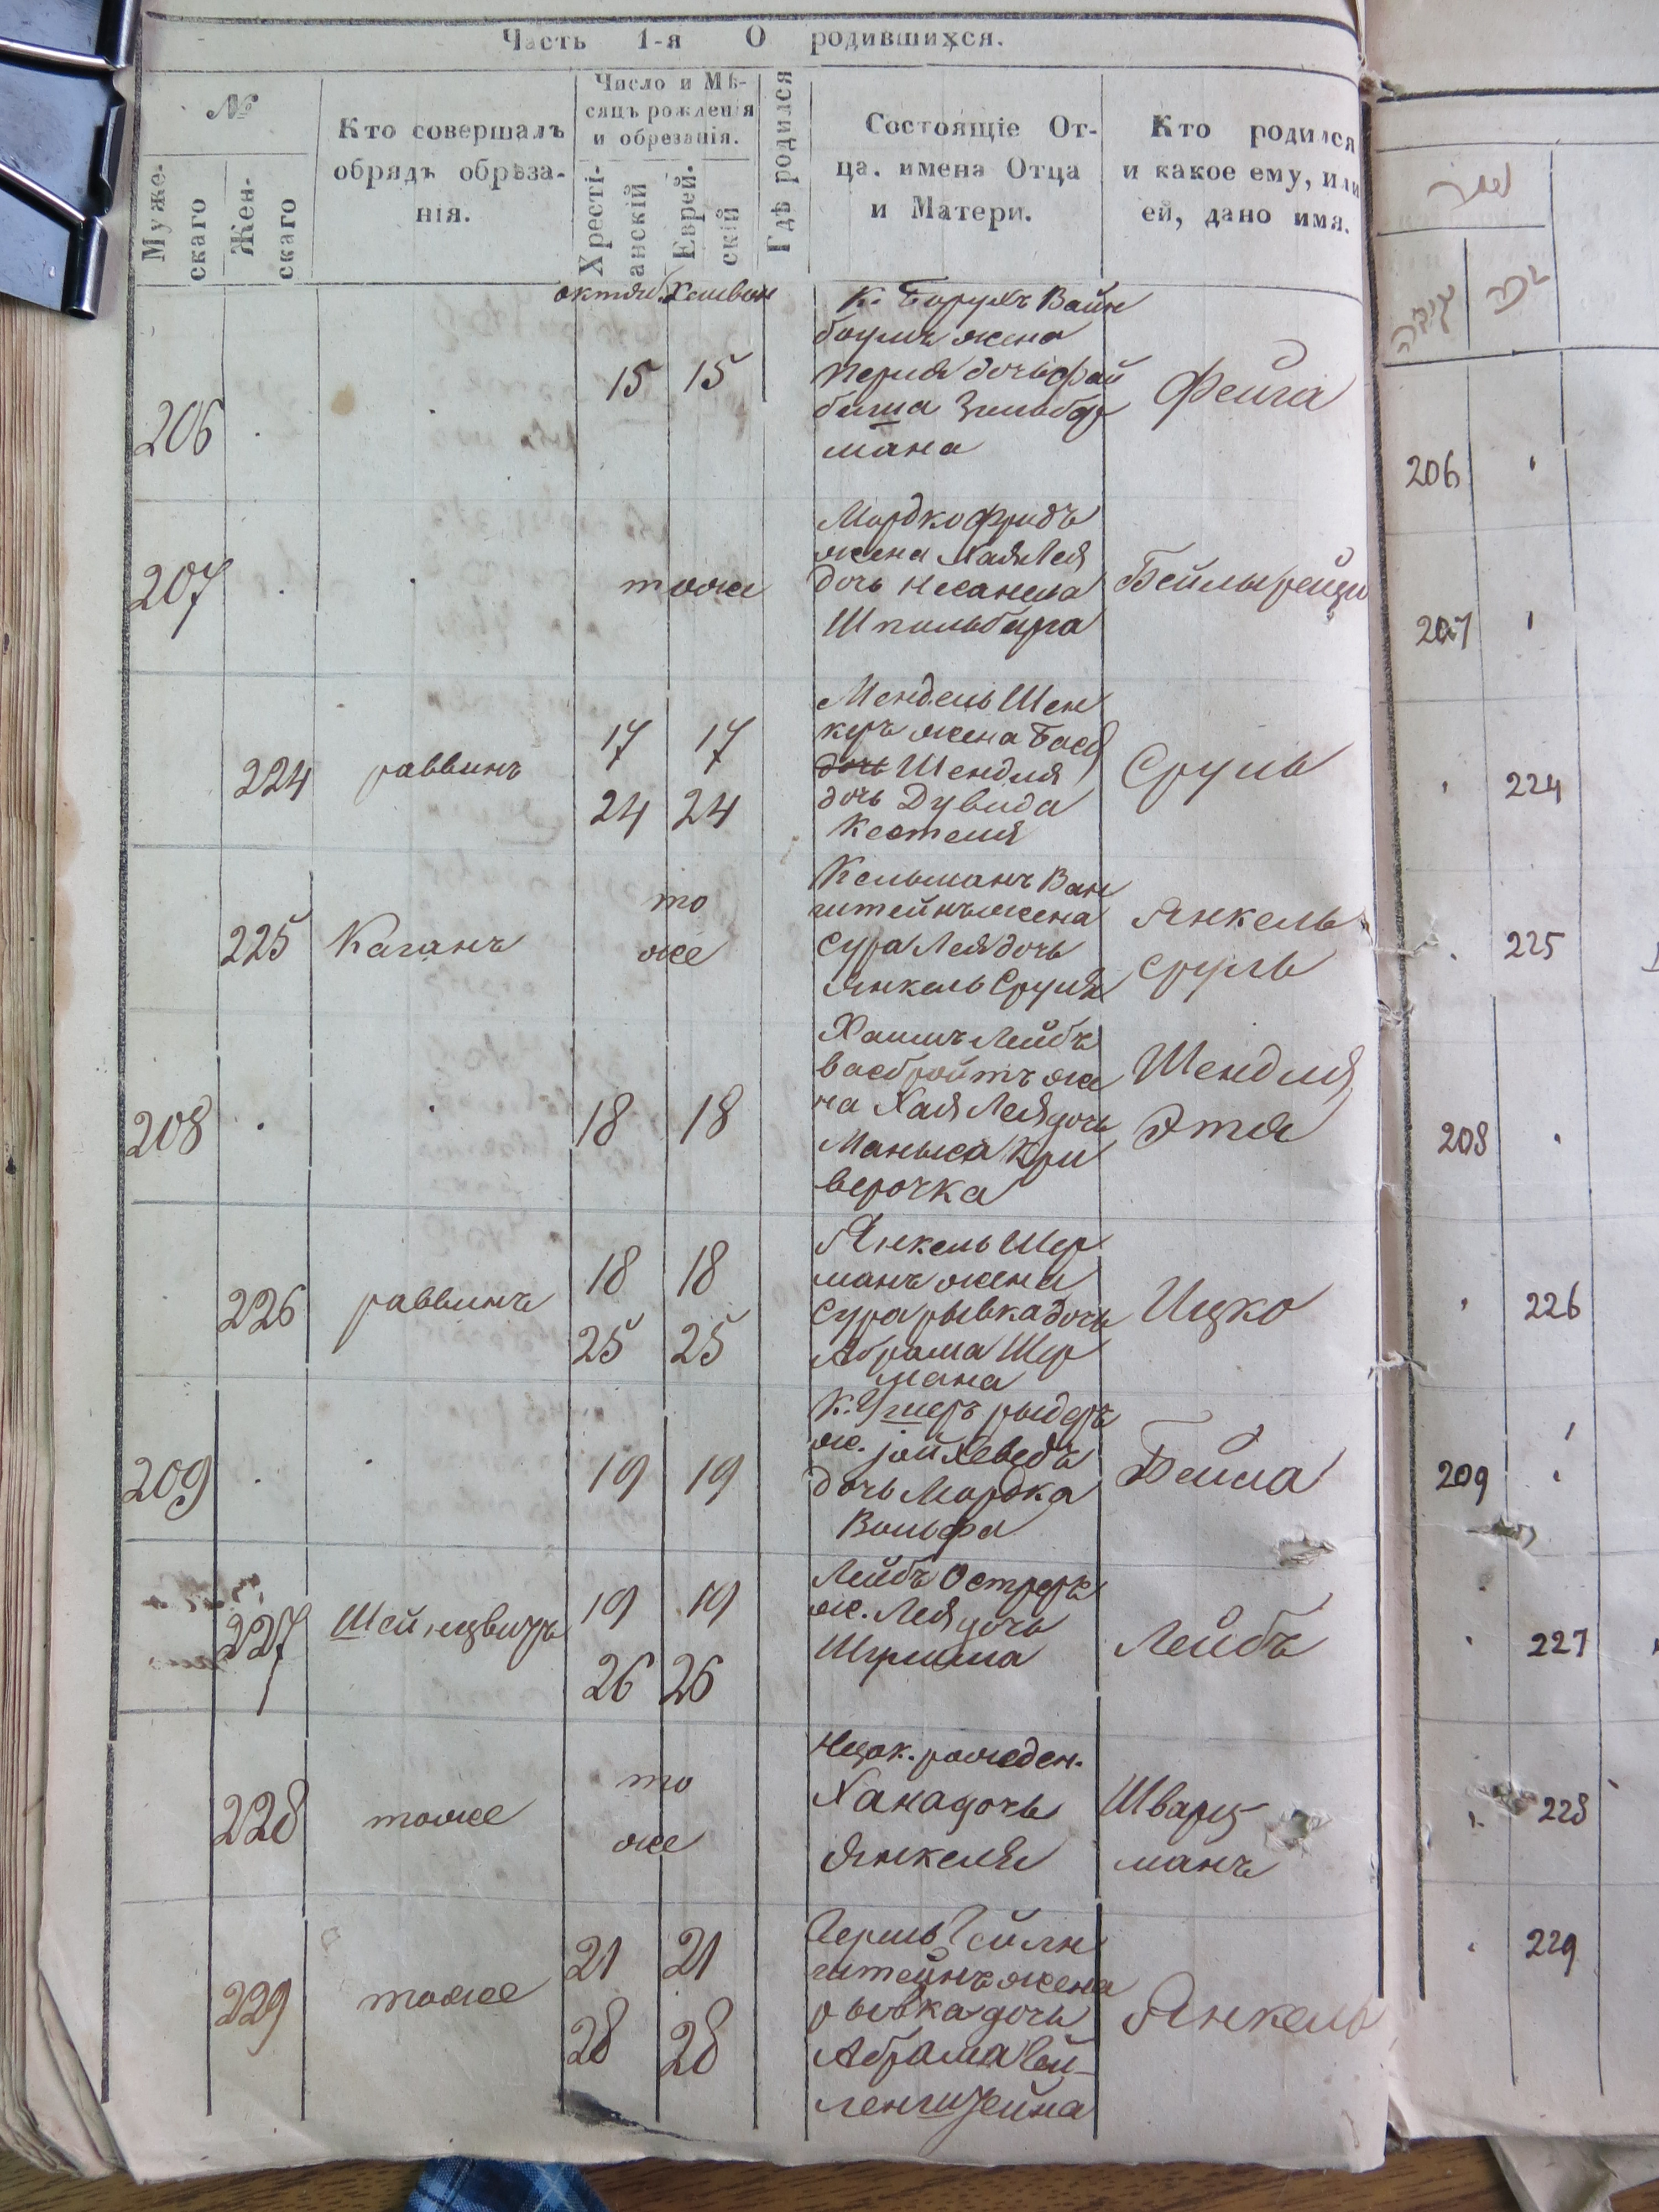 Часть 1-я О родившихся.
№
Муже-
скаго
Жен-
скаго
Кто совершалъ
обрядъ обрѣза-
нія.
Число и Мѣ-
сяцъ рожденія
и обрезанія.
Христі-
анскій
Еврей-
скій
Гдѣ родился
Состоящіе От-
ца, имена Отца
и Матери.
Кто родился
и какое ему, или
ей, дано имя.
октяб. Хешван
206
15 15
К. Борухъ Вайн
боумъ жена
Перля дочь Фай
биша Зильбер
мана
Фейга
207
тоже
Мордко Фридъ
жена Хая Лея
дочь Несанеля
Шпильберга
Бейлы рейзи
224 раввинъ
17 17
24 24
Мендель Шен
керъ жена Бася
дочь Шендля
дочь Дувида
Кестеля
Сруль
225 Каганъ
то
же
Кельманъ Ван
штейнъ жена
Сура Лея дочь
Янкель Сруля
Янкель
Сруль
208
18 18
Хаимъ Лейбъ
Васбройтъ же
на Хая Лея дочь
Маныса Кри
верочка
Шендля
Этя
226 раввинъ
18 18
25 25
Янкель Шер
манъ жена
Сура рывка дочь
Абрама Шер
мана
Ицко
209
19 19
К. Ушеръ рыдеръ
ж.
дочь Мордка
Вольфа
Бейла
227
19 19
26 26
Лейбъ
ж. Лея дочь
Шулима
Лейбъ
228 тоже
то
же
рожден.
Хана дочь
Янкеля
Шварц-
манъ
229 тоже
21 21
28 28
штейнъ жена
рывка дочь
Абрама
Янкель
206
207
224
225
208
226
209
227
228
229